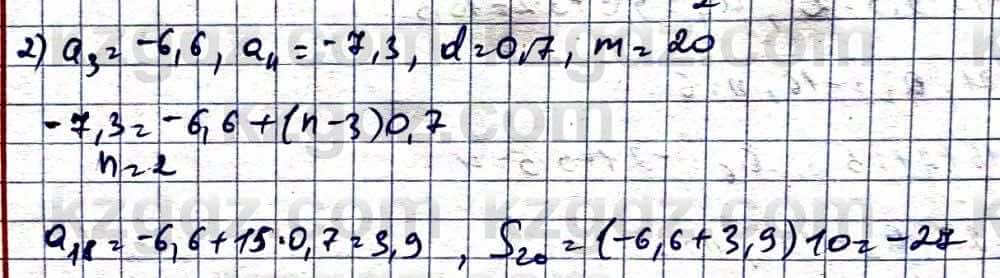 2) a₃ = -6,6, aₙ = -7,3, d = 0,7, m = 20
-7,3 = -6,6 + (n-3)0,7
n = 2
a₁₈ = -6,6 + 15·0,7 = 3,9 , S₂₀ = (-6,6 + 3,9) 10 = -27
kzgdz.com